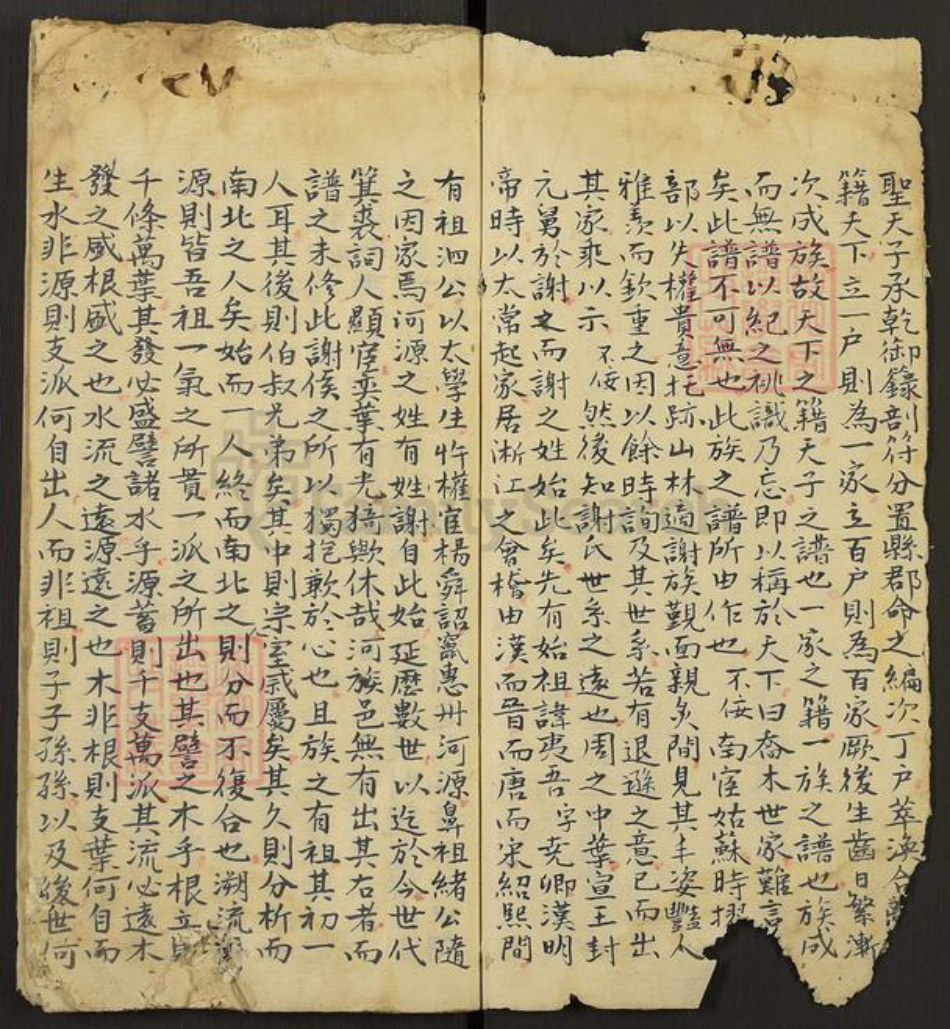 聖天子承乾御籙剖符分置縣郡命之編次丁戶萃渙合
籍天下立一户則為一家立百户則為百家厥後生齒日繁漸
次成族故天下之籍天子之譜也一家之籍一族之譜也族成
而無譜以紀之祧識乃忘即以稱於天下曰喬木世家難言
矣此譜不可無也此族之譜所由作也不佞南宦姑蘇時摺
部以失權貴意托跡山林適謝族覿面親炙間見其丰姿豔人
雅羨而欽重之因以餘時詢及其世系若有退遜之意已而出
其家乘以示不佞然後知謝氏世系之遠也周之中葉宣王封
元舅於謝之而謝之姓始此矣先有始祖諱夷吾字堯卿漢明
帝時以太常起家居淅江之會稽由漢而晉而唐而宋紹熙間
有祖泗公以太學生忤權宦楊舜詔竄惠州河源鼻祖緒公隨
之因家焉河源之姓有姓謝自此始延歷數世以迄於今世代
箕裘詞人顯宦奕葉有光猗歟休哉河族邑無有出其右者而
譜之未修此謝侯之所以獨抱歉於心也且族之有祖其初一
人耳其後則伯叔兄弟矣其中則宗室戚屬矣其久則分析而
南北之人矣始而一人終而南北之則分而不復合也溯流
源則皆吾祖一氣之所貫一派之所出也其譬之木乎根立
千條萬葉其發必盛譬諸水乎源蓄則千支萬派其流必遠木
發之盛根盛之也水流之遠源遠之也木非根則支葉何自而
生水非源則支派何自出人而非祖則子子孫孫以及後世何